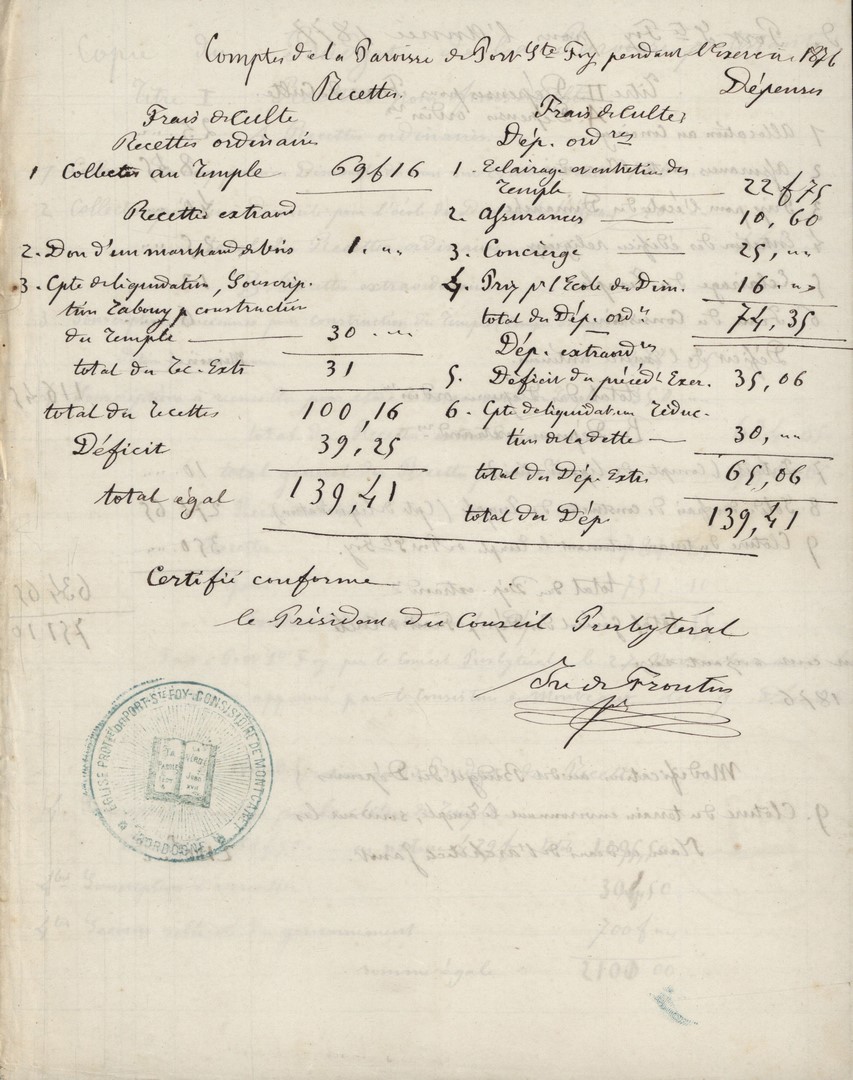 Comptes de la Paroisse de Port Ste Foy pendant l'Exercice 1876
Recettes.
Frais de Culte
Recettes ordinaires
1 Collectes au Temple 69f16
Recettes extraord
2. Don d'un marchand de bois 1. "
3. Cpte de liquidation, Souscrip.
tion Tabouy p construction
du Temple 30 . "
total du rec. Exts 31
total du recettes 100,16
Déficit 39,25
total égal 139,41
Dépenses
Frais de Culte
Dép. ordres
1. Eclairage et entretien des
Temple 22f75
2. Assurances 10,60
3. Concierge 25, "
4. Prix pr l'Ecole du Dim. 16 . "
total du Dép. ordres 74,35
Dép. extraordres
5. Déficit du précédt Exer. 35,06
6. Cpte de liquidation réduc-
tion de la dette 30, "
total du Dép. Exts 65,06
total du Dép 139,41
Certifié conforme
le Président du Conseil Presbytéral
EGLISE PROTte DE PORT-STE FOY-CONSISTOIRE DE MONTCARET
DORDOGNE